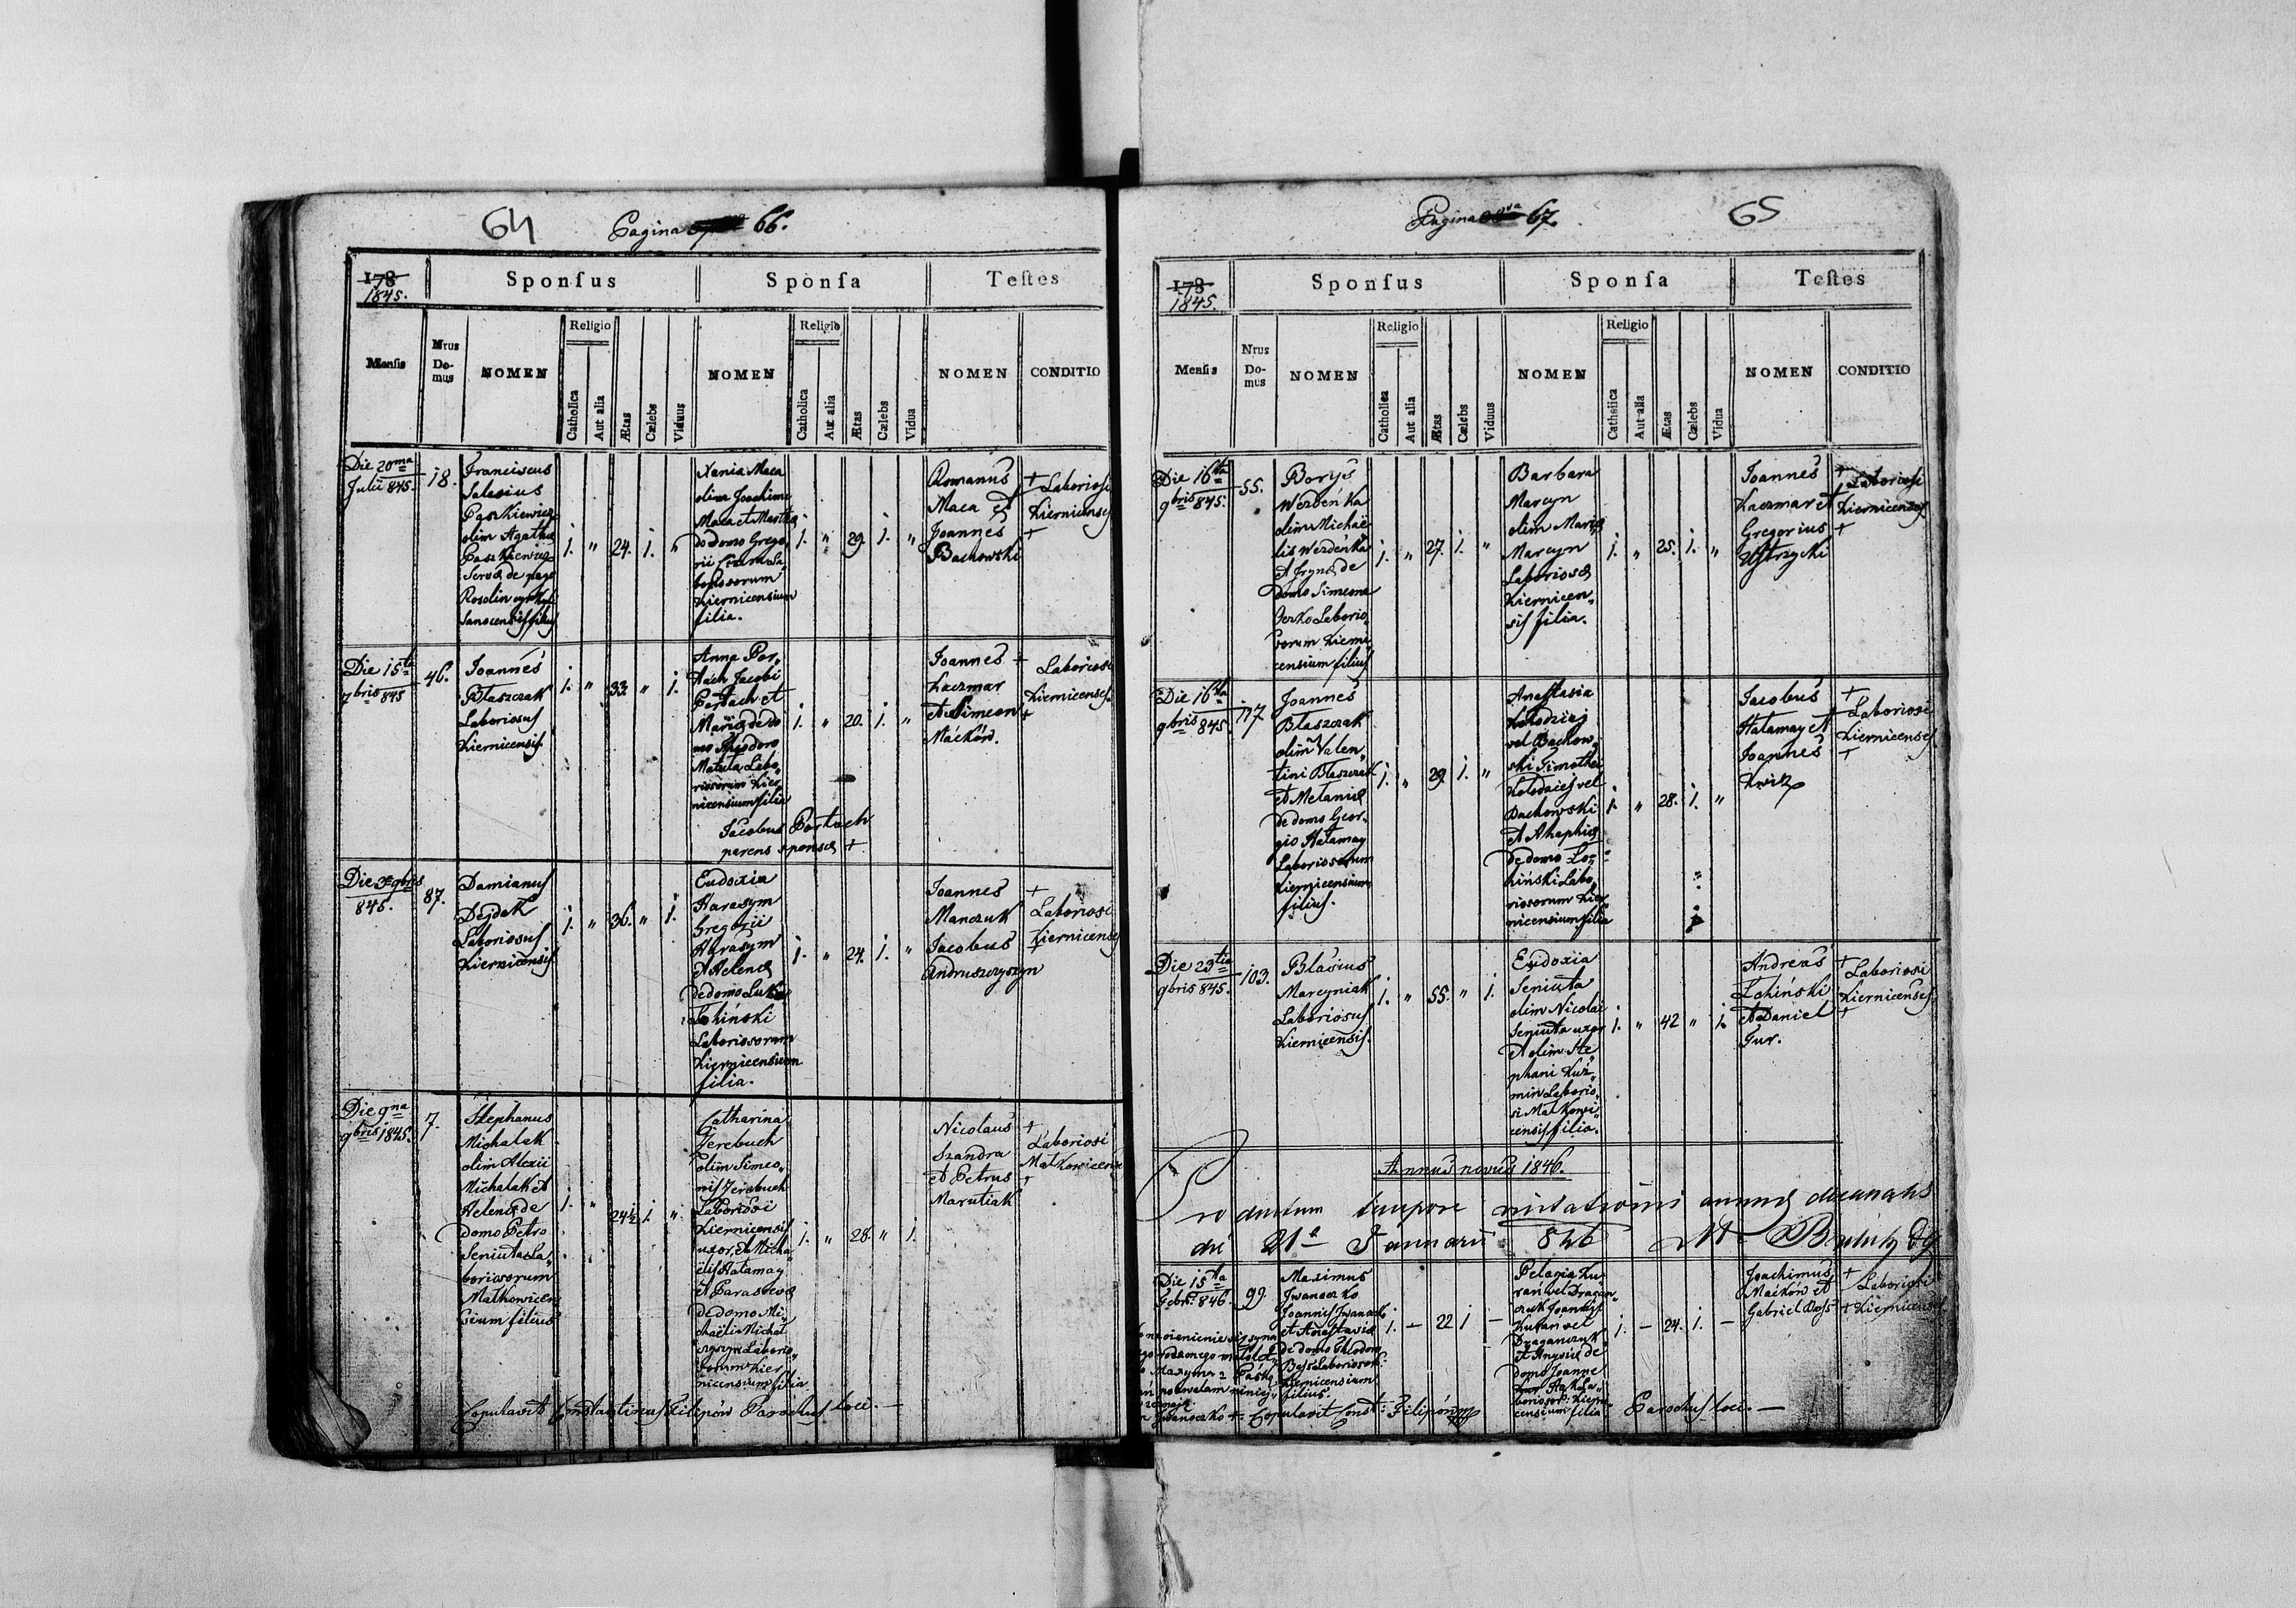 64
Pagina 66.
178
1845.
Sponsus
Sponsa
Testes
Mensis
Nrus
Do-
mus
NOMEN
Religio
Catholica
Aut alia
Ætas
Cælebs
Viduus
NOMEN
Religio
Catholica
Aut alia
Ætas
Cælebs
Vidua
NOMEN
CONDITIO
Die 20ma
Julii 845.
18.
Franciscus
Salesius
Paszkiewicz
olim Agatha
Paszkiewicz
Servæ de pago
Rosolin
Sanocensis filius
1. " 24. 1. "
Xania Maca
olim Joachimi
Maca et Martha
de Domo Grego
rii
boriosorum
Kiernicensium
filia.
1. " 29. 1. "
Romanus
Maca et
Joannes
Bachowski
+ Laboriosi
Kiernicenses
+
Die 15ta
7bris 845
46.
Joannes
Błaszczak
Laboriosus
Kiernicensis.
1. " 33. " 1.
Anna Por„
tach Jacobi
Portach et
Mariæ de do
mo Theodoro
Matuta Labo„
riosorum Kier
nicensium filia
1. " 20. 1. "
Joannes
Kaczmar
et Simeon
Maćków.
+ Laboriosi
Kiernicenses.
+
Jacobus Portach
parens sponsæ +
Die 3a 9bris
845.
87.
Damianus
Dejdak
Laboriosus
Kiernicensis
1. " 36. " 1.
Eudoxia
Harasym
Gregorii
Harasym
et Helenæ
de domo Luka
Łohinski
Laboriosorum
Kiernicensium
filia.
1. " 24. 1. "
Joannes
Manczuk
Jacobus
Andruszczyszyn
+
Laboriosi
Kiernicenses
+
Die 9na
9bris 1845.
7.
Stephanus
Michalak
olim Alexii
Michalak et
Helenæ de
Domo Petro
Seniuta La„
boriosorum
Matkowicen
sium filius
1. " 24½ 1. "
Catharina
Jerebuch
olim Simeo„
nis Jerebuch
Laboriosi
Kiernicensis
uxor, et Micha„
elis Hatamay
et Parascevæ
de domo Mi„
chaëli Michal
czyszyn Laborio„
sorum Kier
nicensium filia
1. " 28. " 1.
Nicolaus
Szandra
et Petrus
Marutiak
+
Laboriosi
Matkowicenses
+
Copulavit Constantinus Filipów Parochus loci. —
Pagina 67.
65
178
1845.
Sponsus
Sponsa
Testes
Mensis
Nrus
Do-
mus
NOMEN
Religio
Catholica
Aut alia
Ætas
Cælebs
Viduus
NOMEN
Religio
Catholica
Aut alia
Ætas
Cælebs
Vidua
NOMEN
CONDITIO
Die 16ta
9bris 845.
55.
Borys
Wezdeńka
olim Michaë
lis Wezdeńka
et Irynæ de
Domo Simeone
Jerko Laborio„
sorum Kierni„
censium filius
1. " 27. 1. "
Barbara
Marcyn
olim Mariæ
Marcyn
Laboriosæ
Kiernicen„
sis filia.
1. " 25. 1. "
Joannes
Kaczmar et
Gregorius
Ustrzycki
+ Laboriosi
Kiernicenses
+
Die 16ta
9bris 845.
117
Joannes
Błaszczak
olim Valen„
tini Błaszczak
et Melaniæ
de domo Geor„
gio Hatamay
Laboriosorum
Kiernicensium
filius.
1. " 29. 1. "
Anastasia
Kołodziej
vel Bachow„
ski Timothei
Kołodziej vel
Bachowski
et Ahaphiæ
de domo Ło
hiński Labo„
riosorum Kier
nicensium filia
1. " 28. 1. "
Jacobus
Hatamay et
Joannes
Kwicz
+
Laboriosi
Kiernicenses
+
Die 23tia
9bris 845.
103.
Blasius
Marcyniak
Laboriosus
Kiernicensis.
1. " 55. " 1.
Eudoxia
Seniuta
olim Nicolai
Seniuta uxor
et olim Ste„
phani Kuź„
min Laborio„
si Matkowi„
censis filia.
1. " 42 " 1.
Andreas
Łohiński
et Daniel
Gur.
+ Laboriosi
Kiernicenses
+
Annus novus 1846.
Productum tempore visitationis decanalis
die 21a Januarii 846
Die 15ta
Febr: 846.
99
Maximus
Iwanoczko
Joannis Iwanoczko
et Anastasiæ
de Domo Theodoro
Bass Laboriosor:
Kiernicensium
filius.
1. — 22 1 —
Pelagia Ku„
ran vel Dragan„
czuk Joannis
Kuran vel
Draganczuk
et Anysiæ de
domo Joanne
Hak La„
boriosor: Kierni„
censium filia
1. — 24. 1. —
Joachimus
Maćków et
Gabriel Bass
+ Laboriosi
+ Kiernicenses
Iwanoczko + Copulavit Const: Filipów Parochus loci. —